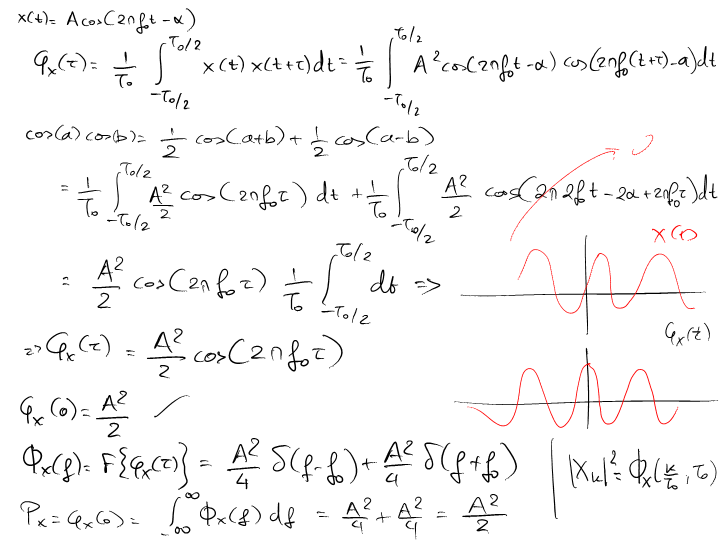 x(t)= A cos(2πf₀t-α)
φₓ(τ)= 1/T₀ ∫_{-T₀/2}^{T₀/2} x(t) x(t+τ) dt = 1/T₀ ∫_{-T₀/2}^{T₀/2} A² cos(2πf₀t-α) cos(2πf₀(t+τ)-α)dt
cos(a) cos(b)= 1/2 cos(a+b) + 1/2 cos(a-b)
= 1/T₀ ∫_{-T₀/2}^{T₀/2} A²/2 cos(2πf₀τ) dt + 1/T₀ ∫_{-T₀/2}^{T₀/2} A²/2 cos(2π2f₀t-2α+2πf₀τ)dt
x(t)
= A²/2 cos(2πf₀τ) 1/T₀ ∫_{-T₀/2}^{T₀/2} dt =>
φₓ(τ)
=> φₓ(τ) = A²/2 cos(2πf₀τ)
φₓ(0)= A²/2
Φₓ(f)= F{φₓ(τ)} = A²/4 δ(f-f₀) + A²/4 δ(f+f₀)
|Xₖ|²= Φₓ(k/T₀, T₀)
Pₓ=φₓ(0)= ∫_{-∞}^{∞} Φₓ(f) df = A²/4 + A²/4 = A²/2